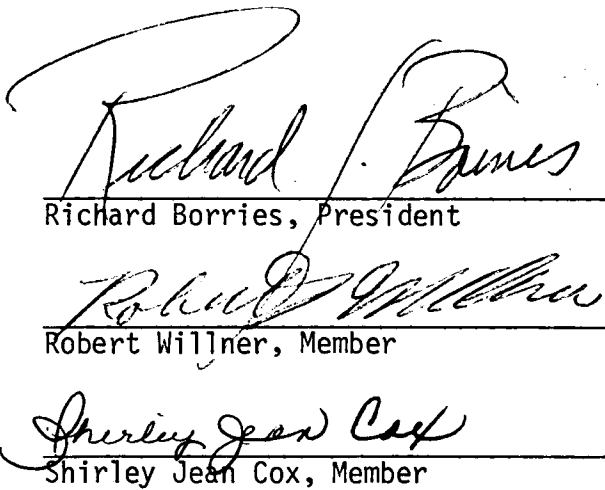 Richard J. Borries
Richard Borries, President
Robert Willner
Robert Willner, Member
Shirley Jean Cox
Shirley Jean Cox, Member